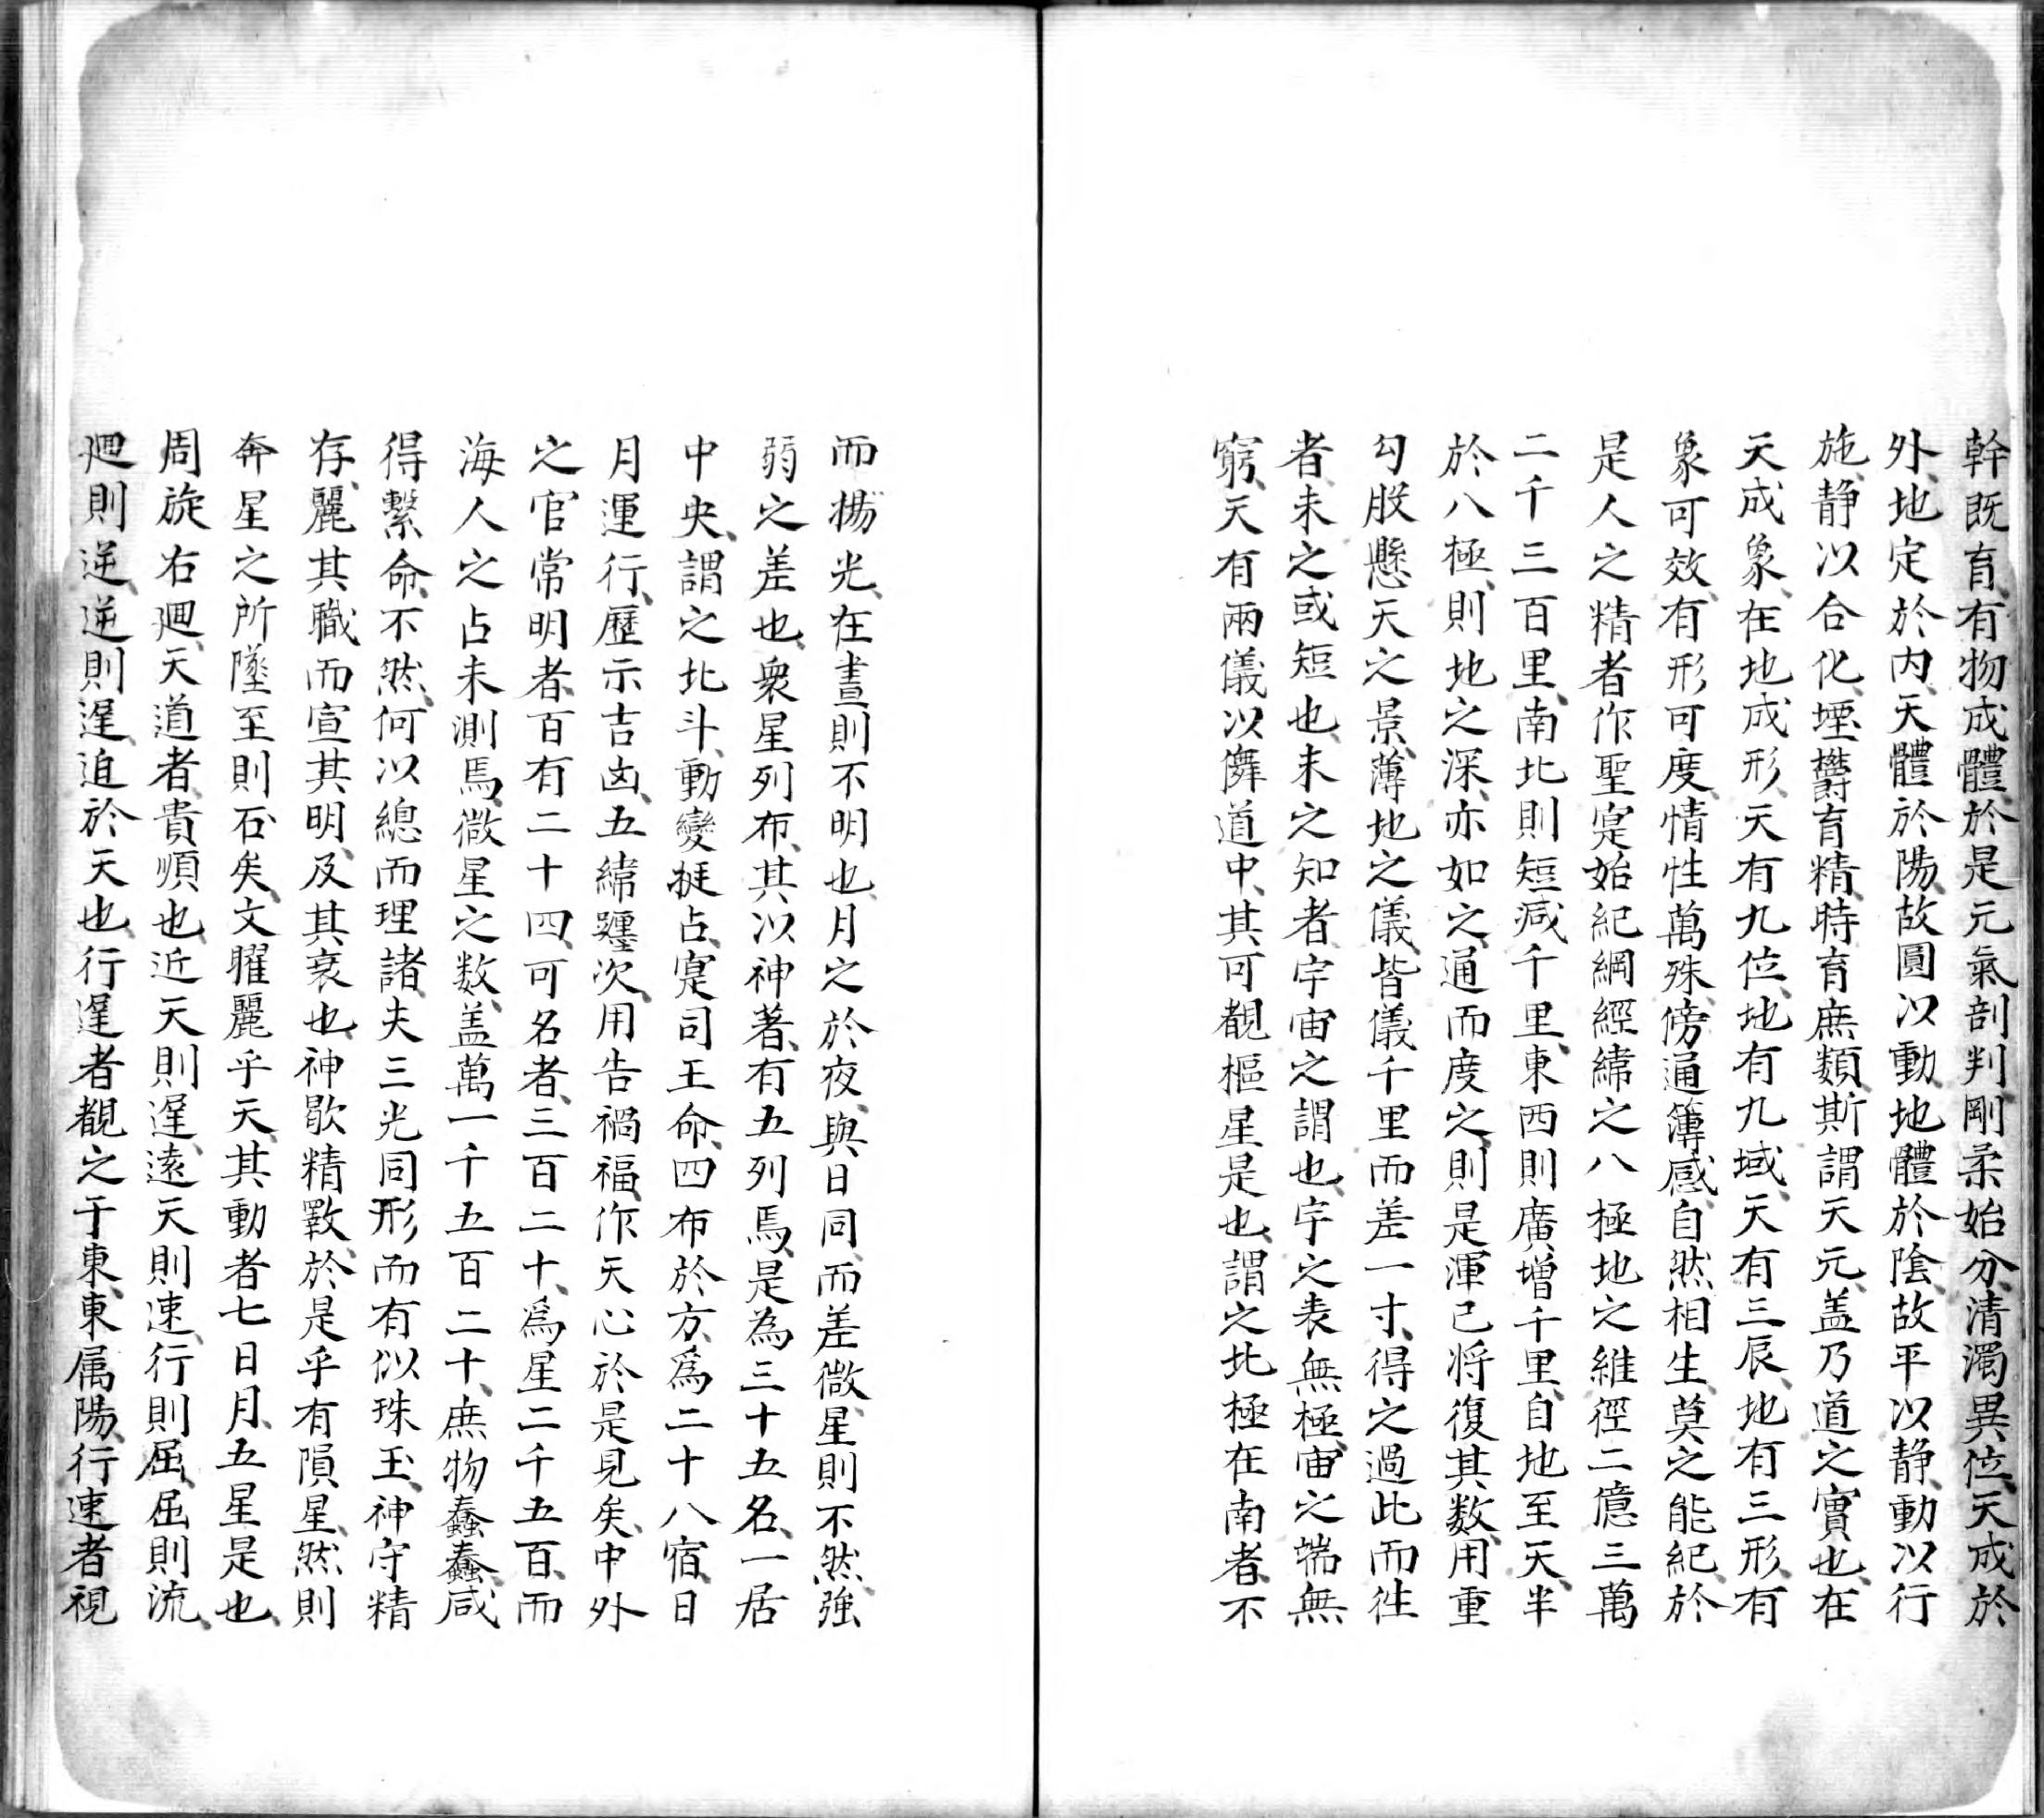 幹既育、有物成體、於是元氣剖判、剛柔始分、清濁異位、天成於
外、地定於内、天體於陽、故圓以動、地體於陰、故平以静、動以行
施、静以合化、堙欝育精、時育庶類、斯謂天元、盖乃道之實也、在
天成象、在地成形、天有九位、地有九域、天有三辰、地有三形、有
象可效、有形可度、情性萬殊、傍通薄感、自然相生、莫之能紀、於
是人之精者作聖、寔始紀綱經緯之、八極地之維、徑二億三萬
二千三百里、南北則短減千里、東西則廣增千里、自地至天、半
於八極、則地之深、亦如之、通而度之、則是渾已、将復其数、用重
勾股懸天之景、薄地之儀、皆儀千里而差一寸、得之過此而徃
者、未之或短也、未之知者、宇宙之謂也、宇之表無極、宙之端無
窮、天有兩儀、以儛道中、其可覩樞星是也、謂之北極、在南者不
而揚光、在晝則不明也、月之於夜、與日同、而差微、星則不然、強
弱之差也、衆星列布、其以神著、有五列焉、是為三十五名、一居
中央、謂之北斗、動變挺占、寔司王命、四布於方、爲二十八宿、日
月運行、歷示吉凶、五緯躔次、用告禍福、作天心於是見矣、中外
之官常明者、百有二十四、可名者、三百二十、爲星二千五百、而
海人之占未測焉、微星之数、盖萬一千五百二十、庶物蠢蠢、咸
得繫命、不然、何以總而理諸、夫三光同形、而有似珠玉、神守精
存、麗其職而宣其明、及其衰也、神歇精斁、於是乎有隕星、然則
奔星之所墬、至則石矣、文曜麗乎天、其動者七、日月、五星是也、
周旋右廻、天道者、貴順也、近天則遲、遠天則速、行則屈、屈則流、
廻則逆、逆則遲、迫於天也、行遲者覩之于東、東属陽、行速者視